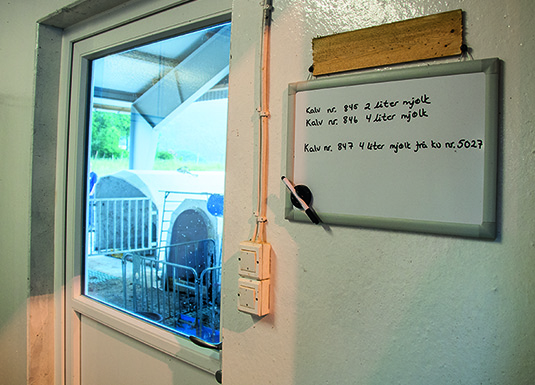 Kalv nr. 845 2 liter mjølk
Kalv nr. 846 4 liter mjølk
Kalv nr. 847 4 liter mjølk frå ku nr. 5027